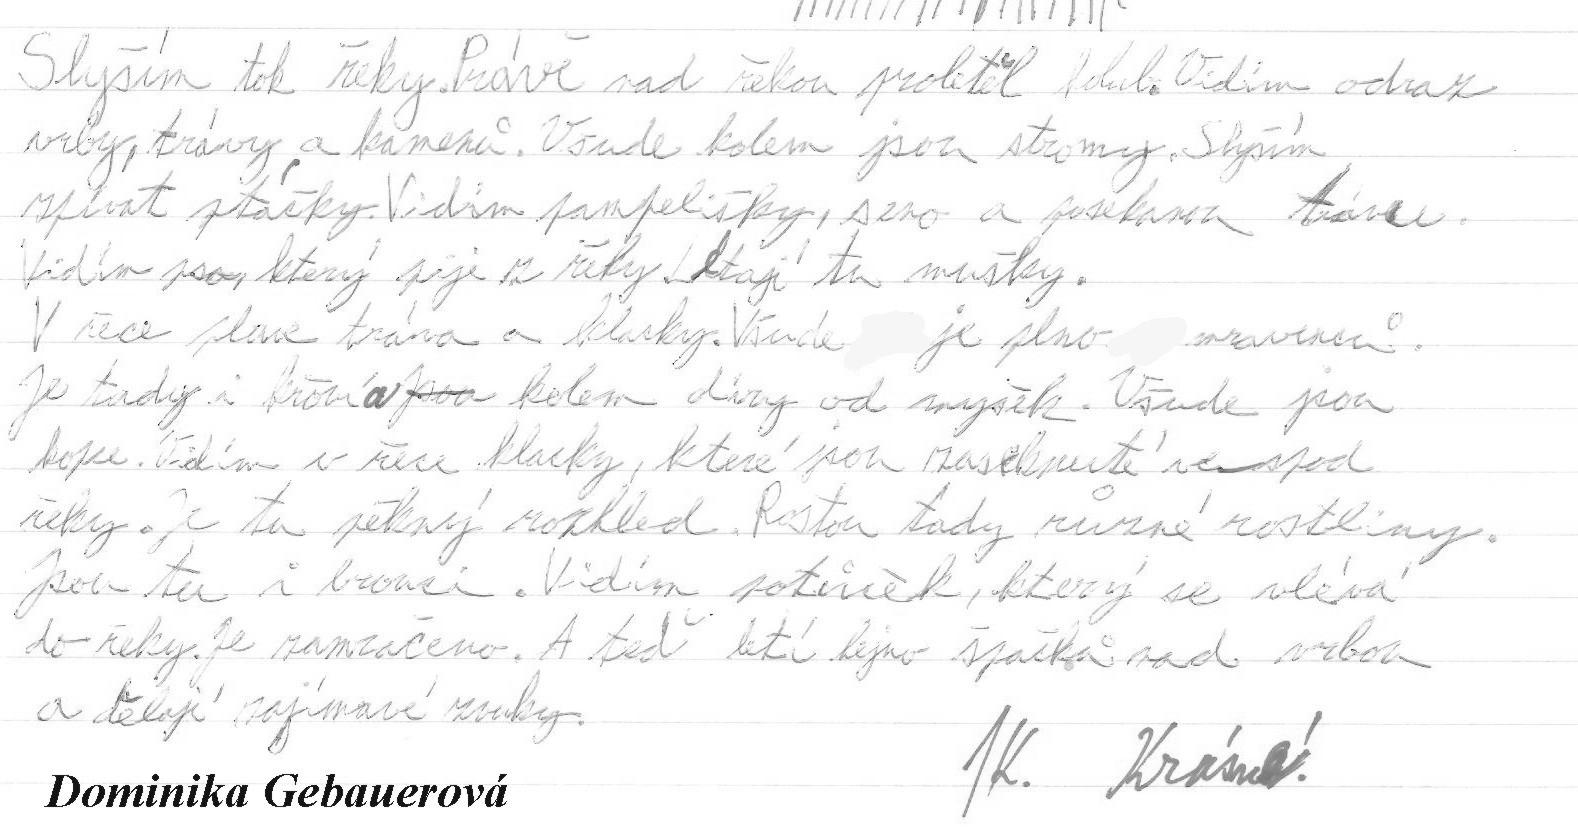 Slyším tok řeky. Právě nad řekou proletěl holub. Vidím odraz
vrby, trávy a kamenů. Všude kolem jsou stromy. Slyším
zpívat ptáčky. Vidím pampelišky, seno a posekanou trávu.
Vidím psa, který pije z řeky. Létají tu mušky.
V řece plave tráva a klacky. Všude je plno mravenců.
Je tady i křoví a jsou kolem díry od myšek. Všude jsou
kopce. Vidím v řece klacky, které jsou zaseknuté ve spod
řeky. Je tu pěkný rozhled. Rostou tady různé rostliny.
Jsou tu i brouci. Vidím potůček, který se vlévá
do řeky. Je zamračeno. A teď letí hejno špačků nad vrbou
a dělají zajímavé zvuky.
1K. Krásné!
Dominika Gebauerová